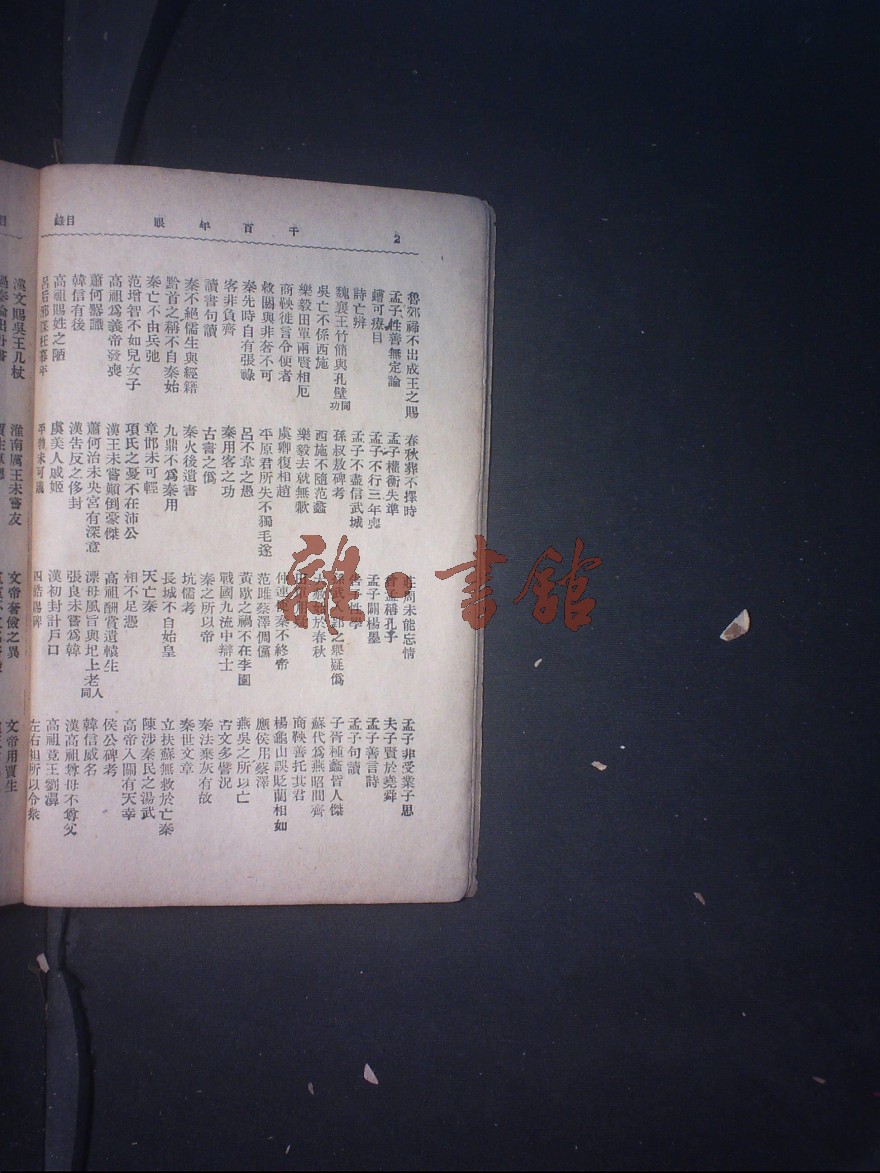 2 千百年眼 目錄
魯郊禘不出成王之賜 春秋葬不擇時 莊周未能忘情 孟子非受業子思
孟子性善無定論 孟子權衡失準 孟稱孔子 夫子賢於堯舜
可療目 孟子不行三年喪 孟子闢楊墨 孟子善言詩
詩亡辨 孟子不盡信武城 告子性學 孟子句讀
魏襄王竹簡與孔壁同功 孫叔敖碑考 孫武 之舉疑偽 子胥種蠡皆人傑
吳亡不係西施 西施不隨范蠡 於春秋 蘇代為燕昭間齊
樂毅田單兩賢相厄 樂毅去就無歉 商鞅善托其君
商鞅徙言令便者 虞卿復相趙 仲連 秦不終帝 楊龜山誤貶藺相如
救閼與非奢不可 平原君所失不獨毛遂 范雎蔡澤倜儻 應侯用蔡澤
秦先時自有張祿 呂不韋之愚 黃歇之禍不在李園 燕吳之所以亡
客非負齊 秦用客之功 戰國九流中辯士 古文多譬況
讀書句讀 古書之偽 秦之所以帝 秦法棄灰有故
秦不絕儒生與經籍 秦火後遺書 坑儒考 秦世文章
黔首之稱不自秦始 九鼎不為秦用 長城不自始皇 立扶蘇無救於亡秦
秦亡不由兵弛 章邯未可輕 天亡秦 陳涉秦民之湯武
范增智不如兒女子 項氏之憂不在沛公 相不足憑 高帝入關有天幸
高祖為義帝發喪 漢王未嘗顛倒豪傑 高祖酬賞遺轅生 侯公碑考
蕭何器識 蕭何治未央宮有深意 漂母風旨與圯上老人同 韓信威名
韓信有後 漢告反之侈封 張良未嘗為韓 漢高祖尊母不尊父
高祖賜姓之陋 虞美人戚姬 漢初封計戶口 高祖竟王劉濞
呂后邪謀在暮年 平勃未可議 四皓賜碑 左右袒所以令衆
漢文賜吳王几杖 淮南厲王未嘗友 文帝奢儉之異 文帝用賈生
雜·書館